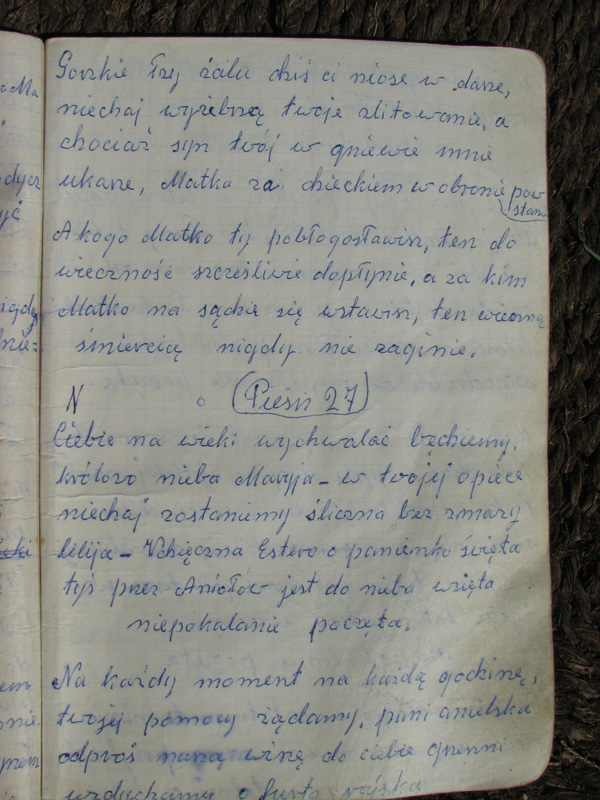 Gorzkie łzy żalu dziś ci niose w darze,
niechaj wyżebrzą twoje zlitowanie, a
chociaż syn twój w gniewie mnie
ukarze, Matka za dzieckiem w obronie pow
stanie
A kogo Matko ty pobłogosławisz, ten do
wieczność szcześliwie dopłynie, a za kim
Matko na sądzie się wstawisz, ten wieczną
śmiercią nigdy nie zaginie.
N Pieśń 27
Ciebie na wieki wychwalać będziemy,
królowo nieba Maryja - w twojej opiece
niechaj zostaniemy śliczna bez zmazy
lilija - Wdzięczna Estero o panienko święta
tyś przez Aniołów jest do nieba wzięta
niepokalanie poczęta.
Na każdy moment na każdą godzinę,
twojej pomocy żądamy, pani anielska
odproś naszą winę do ciebie grzeszni
wzdychamy o furto rajska